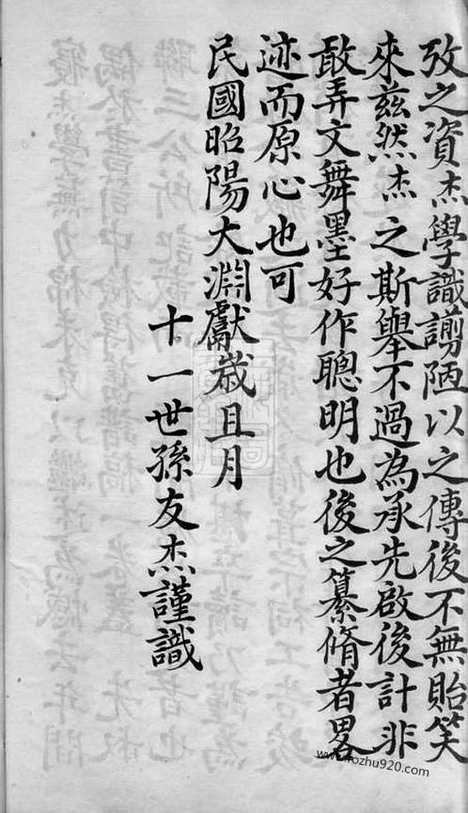 攷之資杰學識譾陋以之傳後不無貽笑
來兹然杰之斯舉不過為承先啟後計非
敢弄文舞墨好作聰明也後之纂脩者畧
迹而原心也可
民國昭陽大淵獻歲且月
十一世孫友杰謹識
www.fozhu920.com